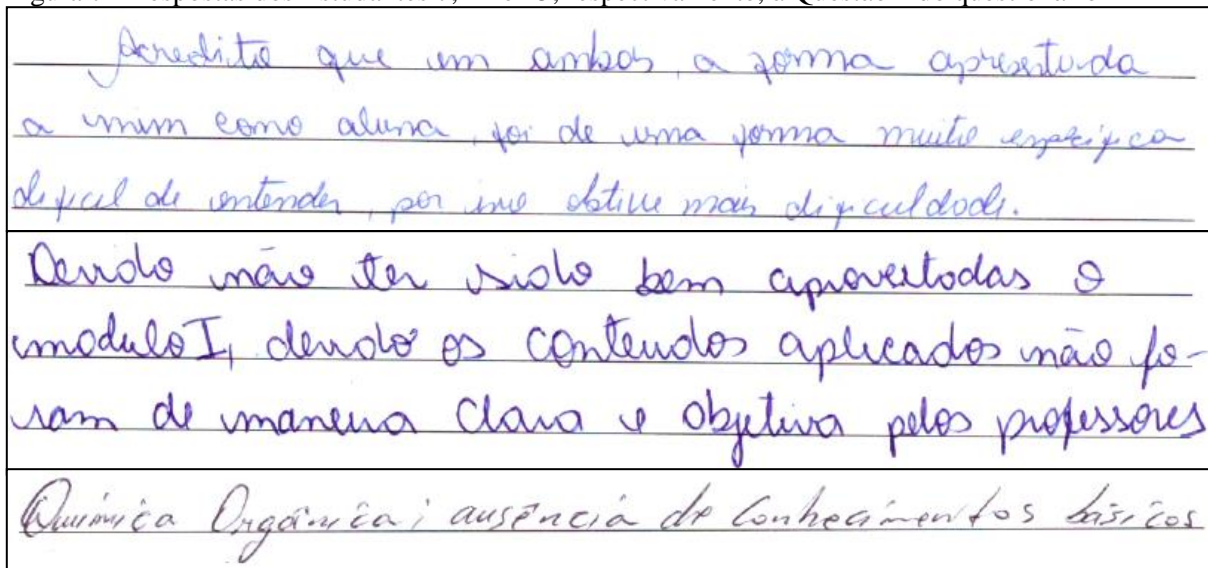 Acredito que em ambos, a forma apresentada
a mim como aluna, foi de uma forma muito específica
dificil de entender, por isso obtive mais dificuldade.
Devido não ter sido bem aproveitadas o
modulo I, devido os conteudos aplicados não fo-
ram de maneira clara e objetiva pelos professores
Química Orgânica; ausência de conhecimentos básicos